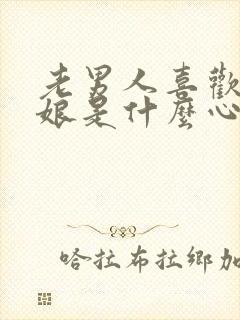 老男人喜歡
娘是什麼心
哈拉布拉鄉加